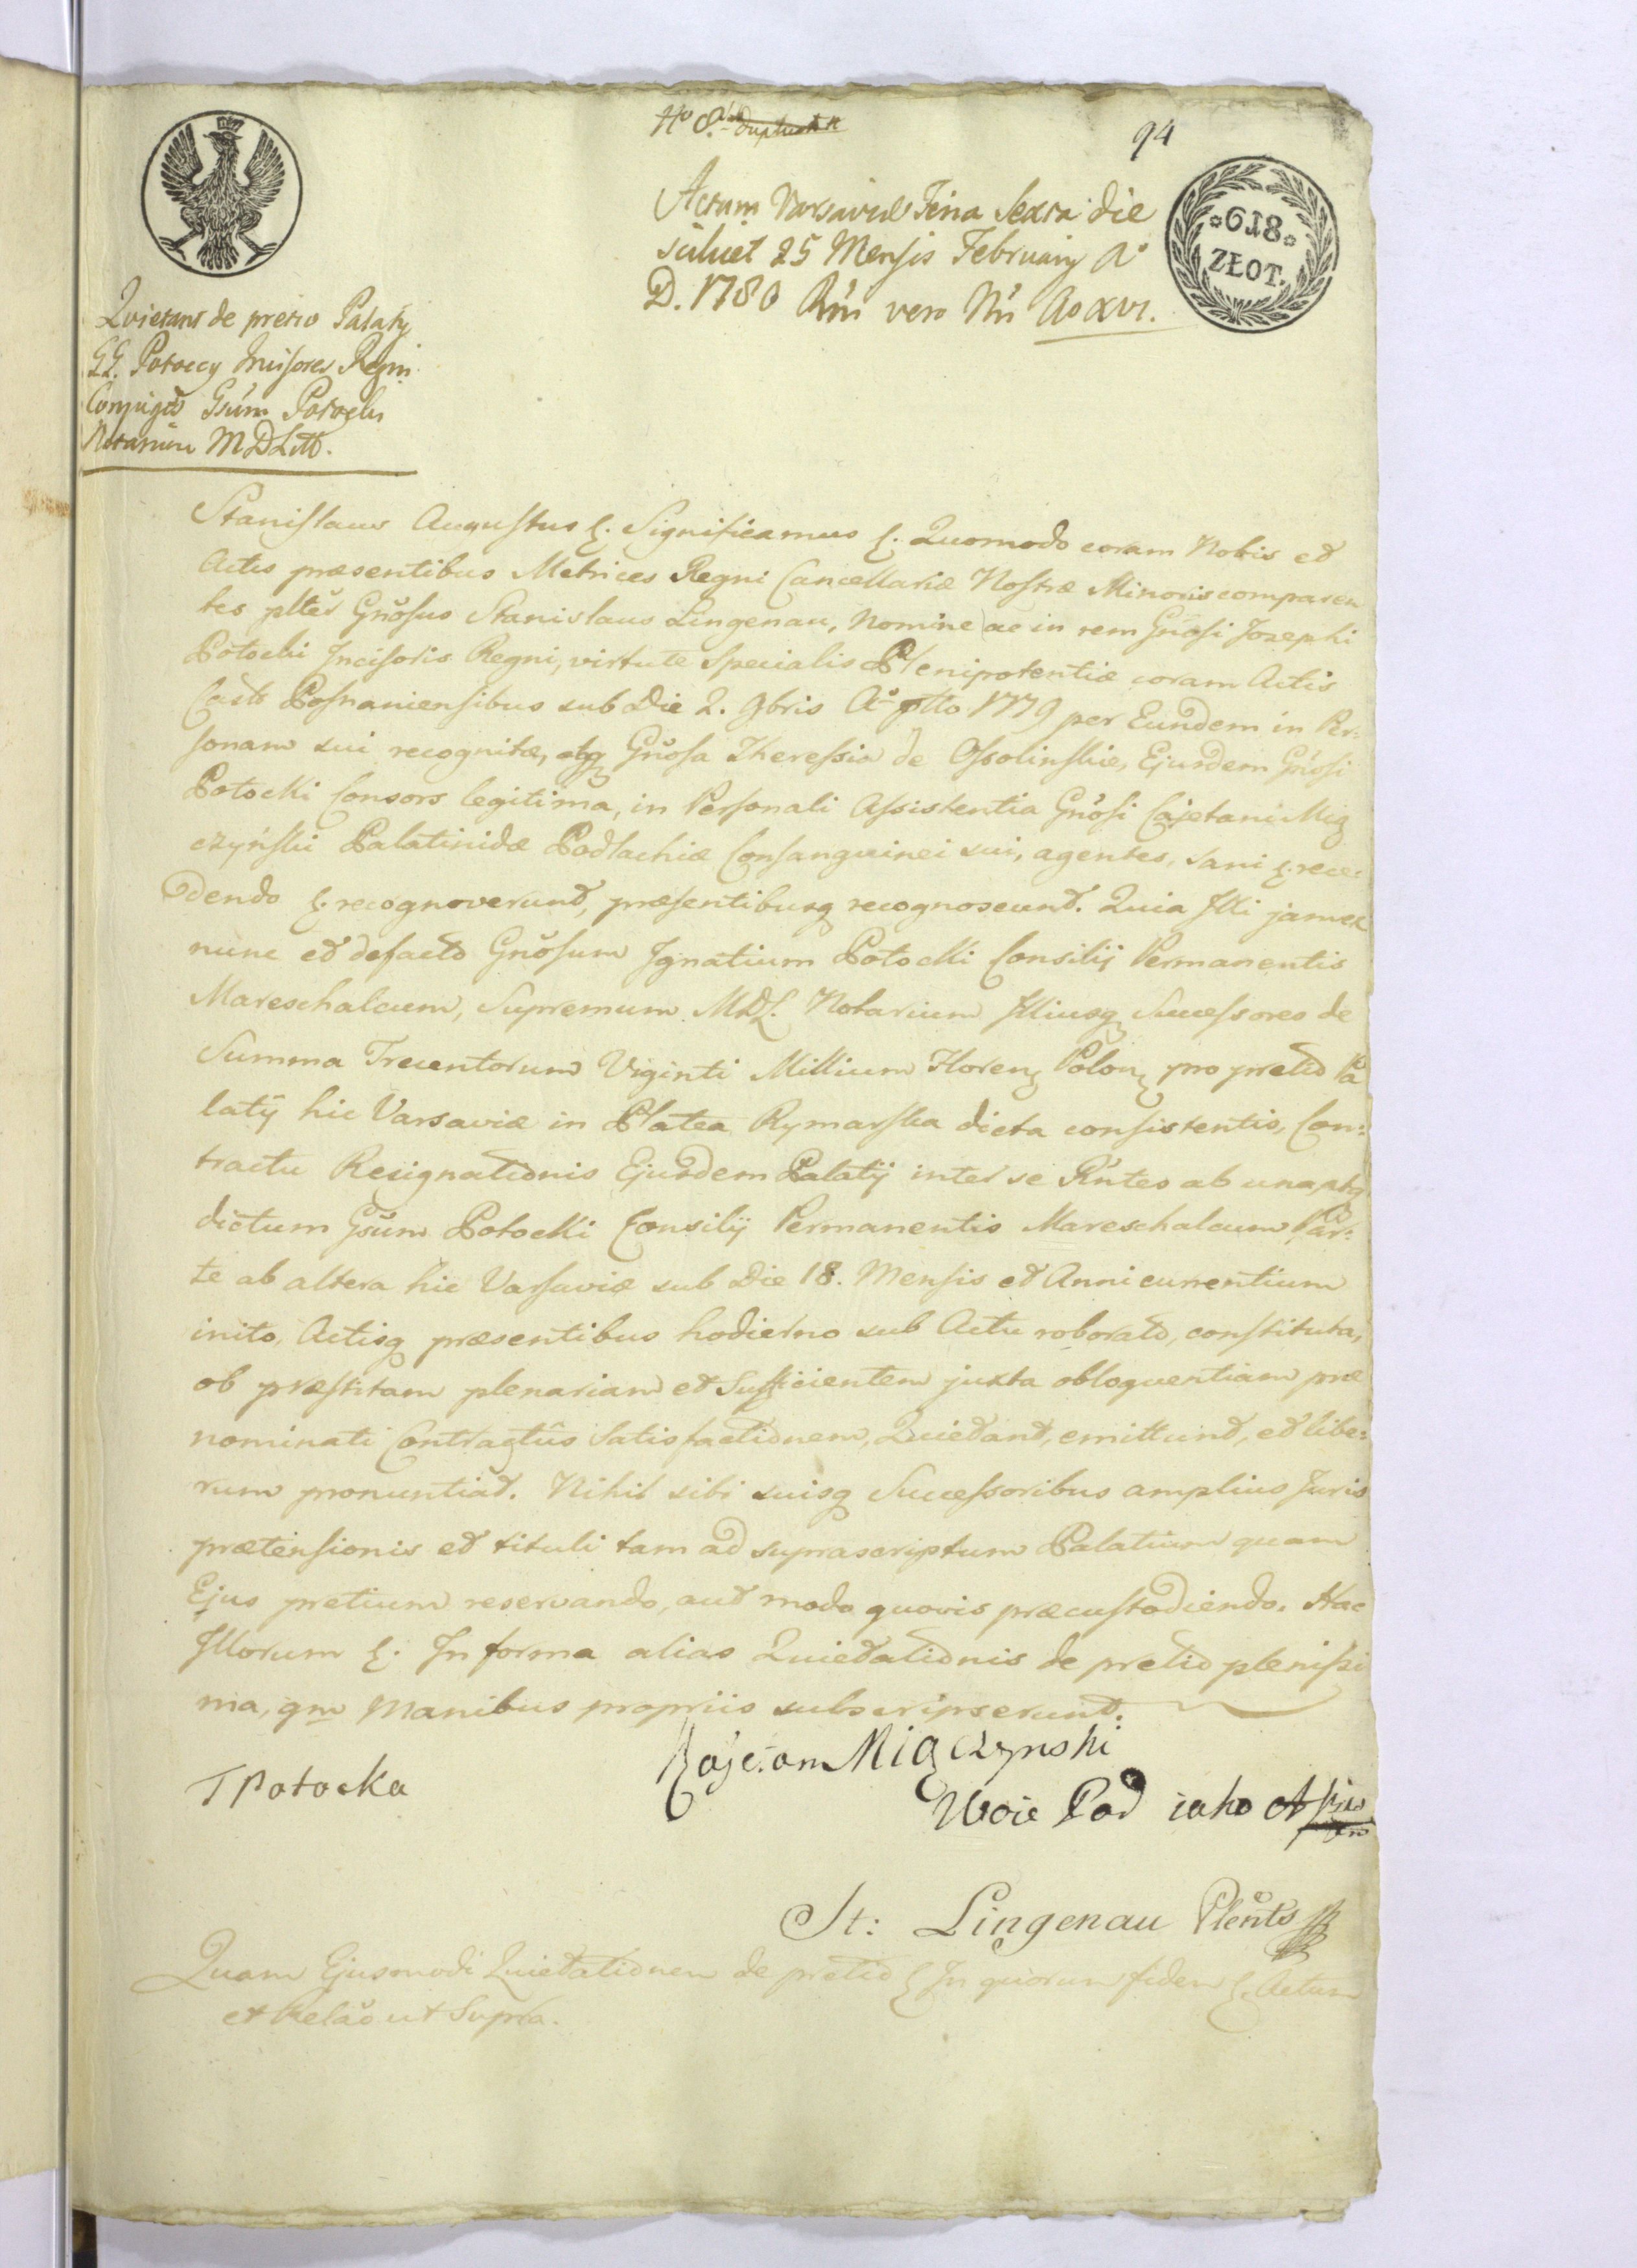 No 8.
94
Actum Varsaviæ Feria Sexta die
scilicet 25 Mensis February Ao
D. 1780 Rni vero Nri Ao XVI.
618
ZŁOT.
Quietant de pretio Palatÿ
GG. Potoccy Incisores Regni
Conjuges Gsum Potocki
Notarium MDLitt.
Stanislaus Augustus &. Significamus &. Quomodo coram Nobis et
Actis præsentibus Metrices Regni Cancellariæ Nostræ Minoris comparen
tes plter Gnosus Stanislaus Lingenau, Nomine ac in rem Gnosi Josephi
Potocki Incisoris Regni, virtute Specialis Plenipotentiæ coram Actis
Castr Posnaniensibus sub Die 2. 9bris Ao ptto 1779 per Eundem in Per:
sonam sui recognitæ, atq Gnosa Theressia de Ossolinskie, Ejusdem Gnosi
Potocki Consors legitima, in Personali Assistentia Gnosi Cajetani Mią
czyński Palatinidæ Podlachiæ Consanguinei sui, agentes, sani &. rece:
dendo &. recognoverunt, præsentibusq recognoscunt. Quia Illi jam ex
nunc et defacto Gnosum Ignatium Potocki Consilij Permanentis
Mareschalcum, Supremum MDL. Notarium Illiusq Successores de
Summa Trecentorum Viginti Millium Floren Polon pro pretio Pa
latÿ hic Varsaviæ in Platea Rymarska dicta consistentis, Con:
tractu Resignationis Ejusdem Palatij inter se Rntes ab una, atq
dictum Gsum Potocki Consilij Permanentis Mareschalcum Par:
te ab altera hic Varsaviæ sub Die 18. Mensis et Anni currentium
inito, Actisq præsentibus hodierno sub Actu roborato, constituta,
ob præstitam plenariam et Sufficientem juxta obloquentiam præ
nominati Contractûs Satisfactionem, Quietant, emittunt, et libe:
rum pronuntiat. Nihil sibi suisq Successoribus amplius Juris
prætensionis et tituli tam ad suprascriptum Palatium quam
Ejus pretium reservando, aut modo quovis præcustodiendo. Hac
Illorum &. In forma alias Quietationis de pretio plenissi
ma, qm Manibus propriis subscripserunt.
T Potocka
Kajetan Miączynski
Woie Pod iako
St: Lingenau Plents
Quam Ejusmodi Quietationem de pretio & In quorum fidem &. Actum
et Relao ut Supra.